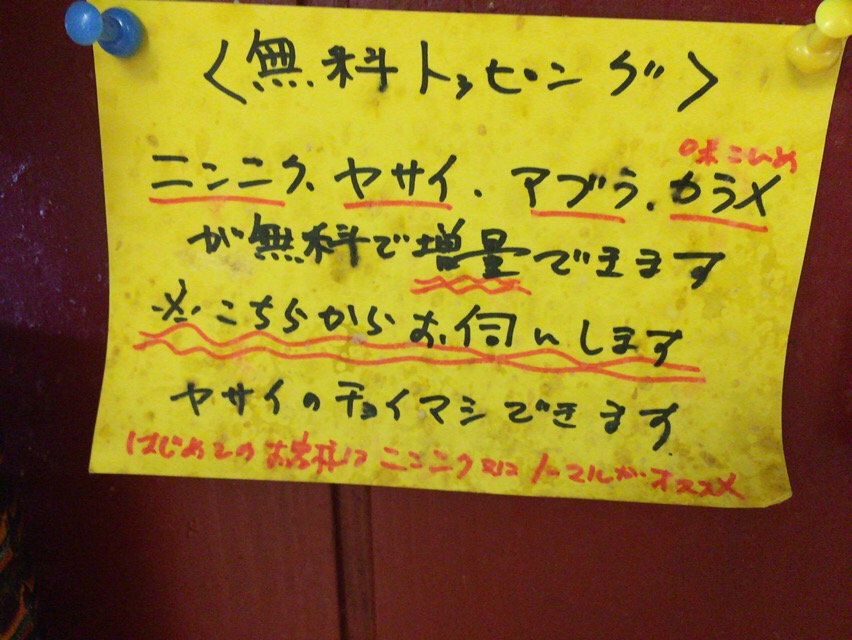 〈無料トッピング〉
味こいめ
ニンニク、ヤサイ、アブラ、カラメ
が無料で増量できます
※こちらからお伺いします
ヤサイのチョイマシできます
はじめてのお客様はニンニク又はノーマルがオススメ